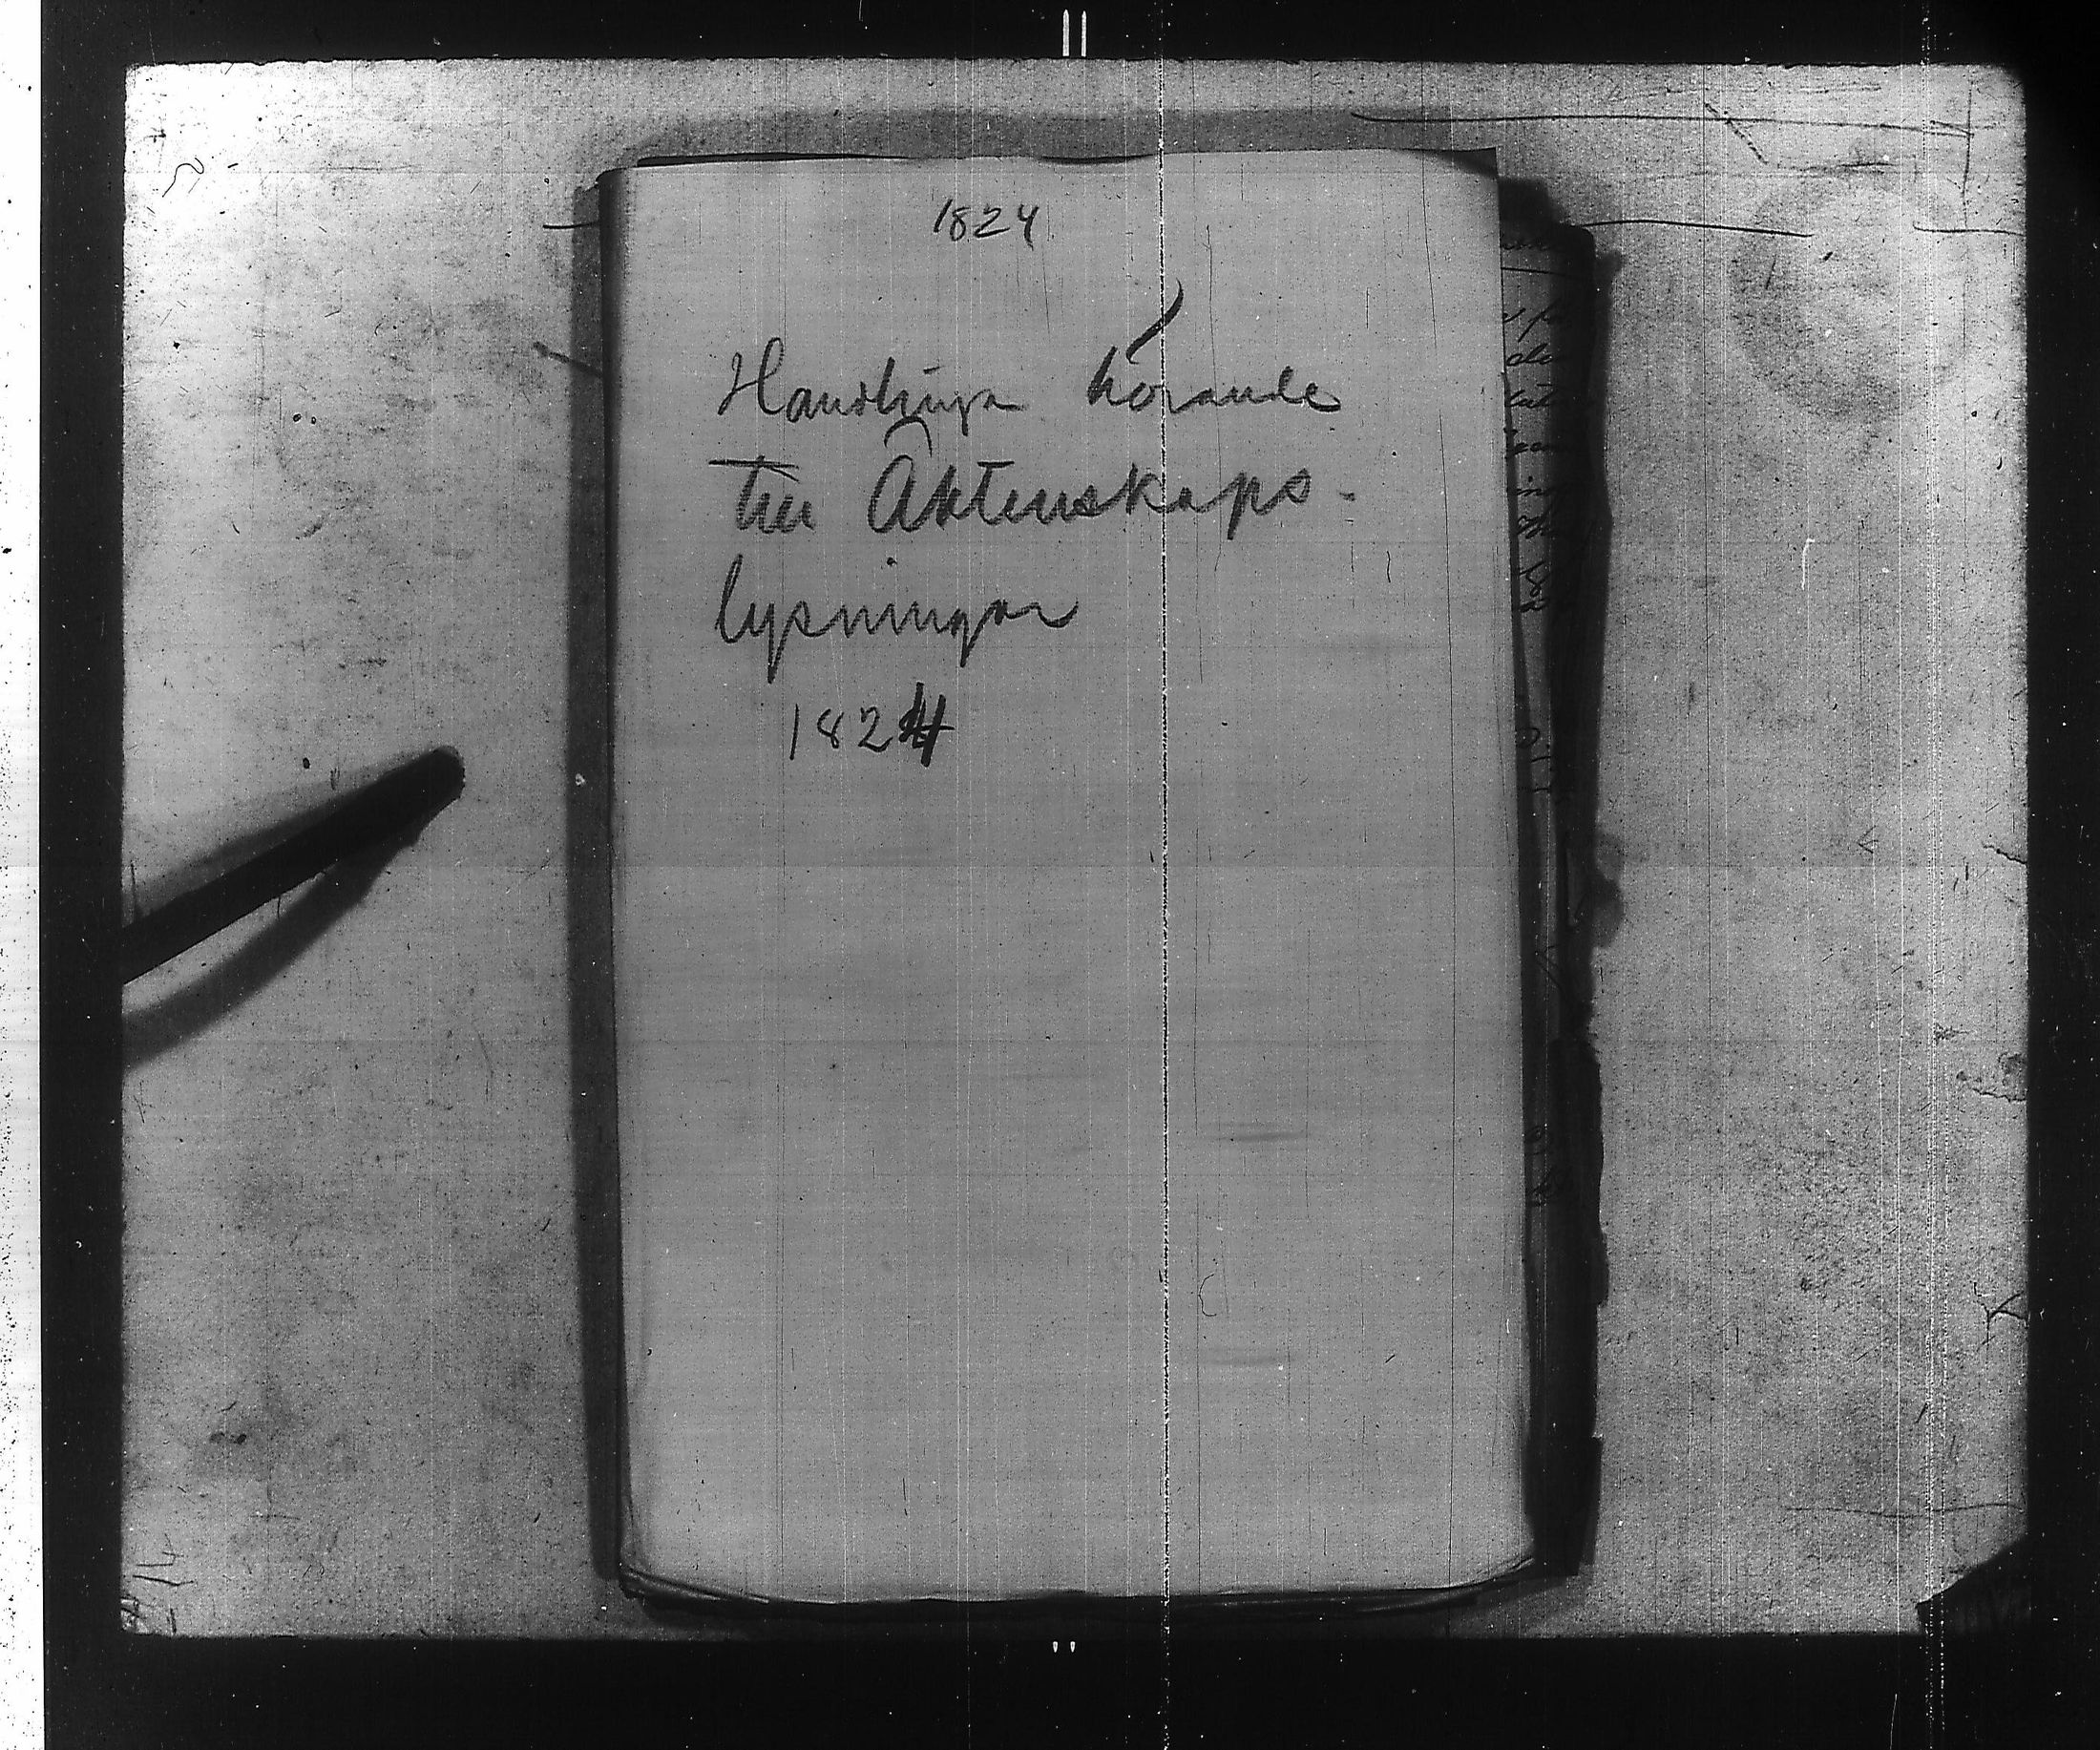 1824
Handlingar hörande
till Äktenskaps-
lysningar
1824